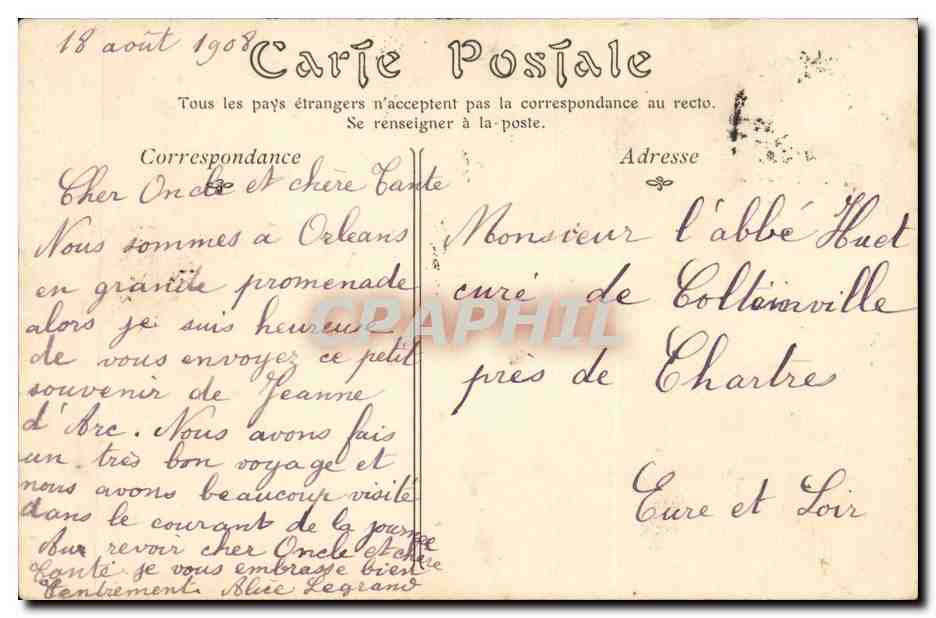 18 août 1908
Carte Postale
Tous les pays étrangers n'acceptent pas la correspondance au recto.
Se renseigner à la poste.
Correspondance
Cher Oncle et chère Tante
Nous sommes à Orleans
en grande promenade
alors je suis heureuse
de vous envoyez ce petit
souvenir de Jeanne
d'Arc. Nous avons fais
un très bon voyage et
nous avons beaucoup visité
dans le courant de la journee
Au revoir cher Oncle et chère
Tante je vous embrasse bien
tentrement. Alice Legrand
Adresse
Monsieur l'abbé Huet
curé de Coltainville
près de Chartres
Eure et Loir
CPAPHIL